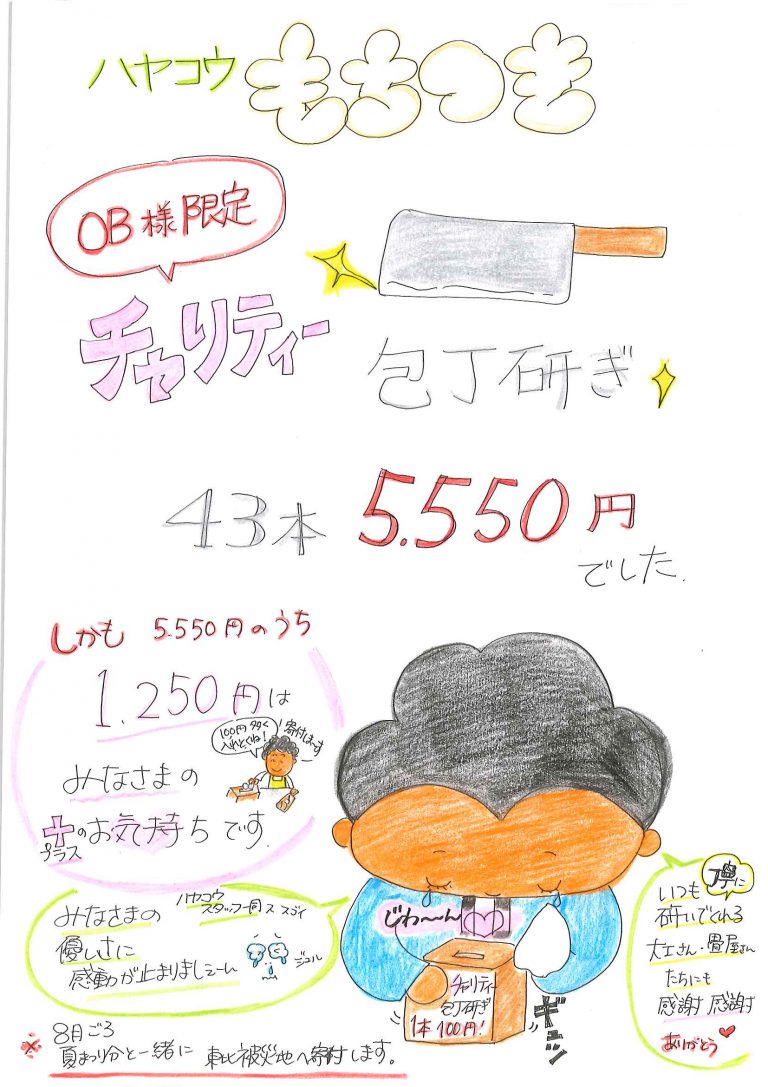 ハヤコウ もちつき
OB様限定
チャリティー
包丁研ぎ
43本 5.550円
でした.
しかも 5.550円のうち
1.250円は
100円多く
入れとくね!
寄付しまーす
みなさまの
プラス
+のお気持ちです.
ハヤコウ
スタッフ一同
みなさまの
優しさに
感動が止まりましぇーん
じわ〜〜ん
チャリティー
包丁研ぎ
1本100円!
ギュッ
いつも丁寧に
研いでくれる
大工さん・畳屋さん
たちにも
感謝 感謝
ありがとう
※8月ごろ
夏まつり分と一緒に 東北被災地へ寄付します。